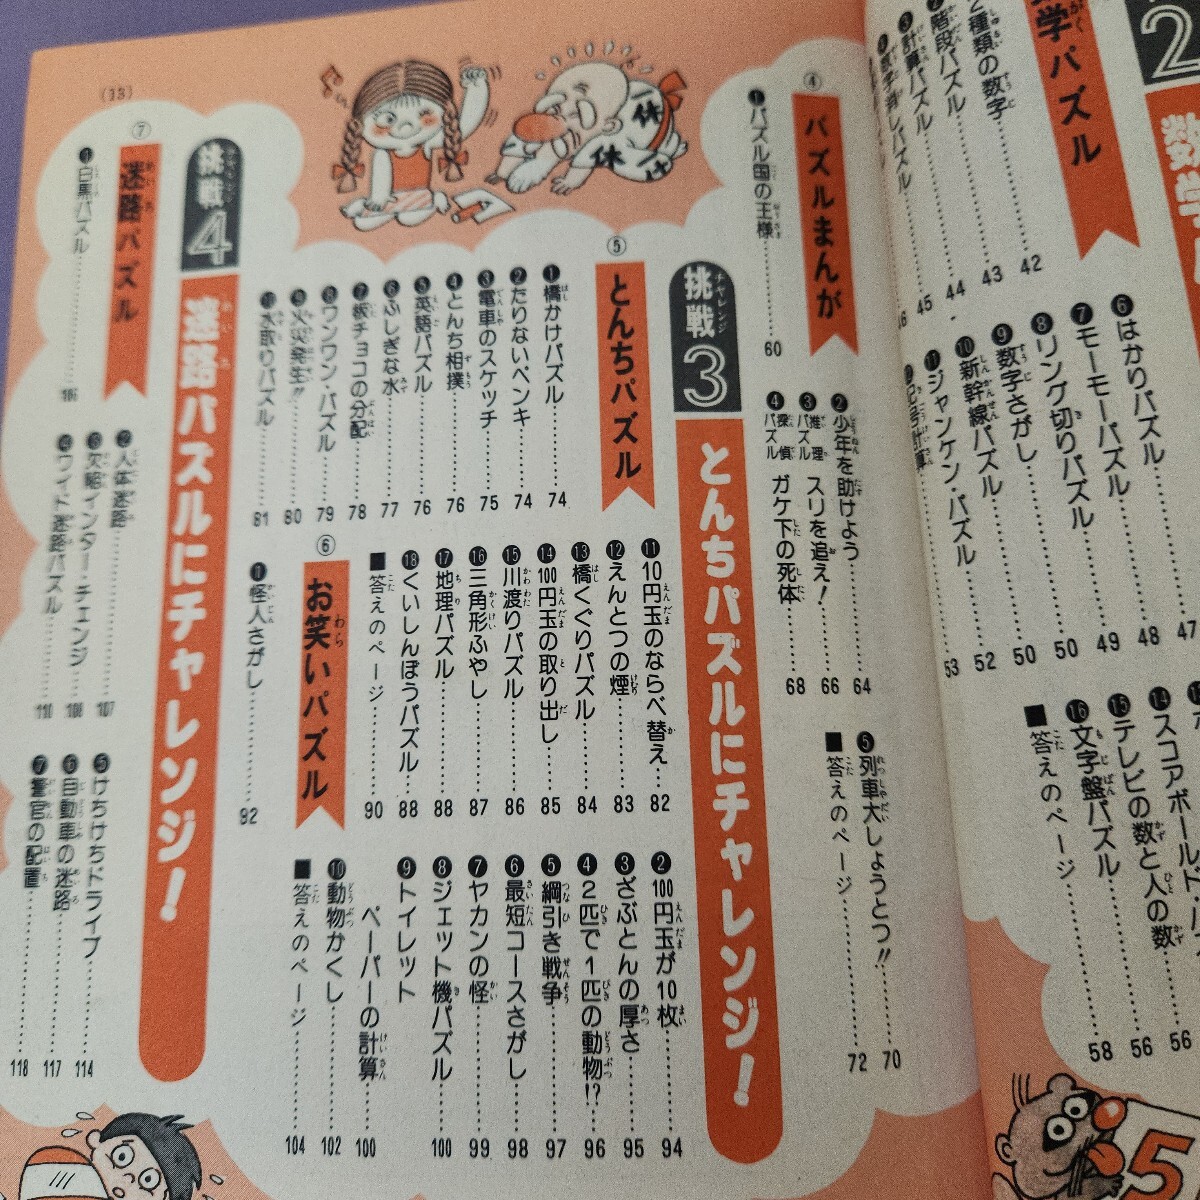 2
数学
学パズル
2種類の数字 42
階段パズル 43
計算パズル 44
45
46
❻はかりパズル 47
❼モーモーパズル 48
❽リング切りパズル 49
❾数字さがし 50
❿新幹線パズル 50
⓫ジャンケン・パズル 52
記号計算 53
⓮スコアボールド 56
⓯テレビの数と人の数 56
⓰文字盤パズル 58
■答えのページ
④
パズルまんが
❶パズル国の王様 60
❷少年を助けよう 64
❸推理パズル スリを追え! 66
❹探偵パズル ガケ下の死体 68
❺列車大しょうとつ!! 70
■答えのページ 72
挑戦3
チャレンジ
とんちパズルにチャレンジ!
⑤
とんちパズル
❶橋かけパズル 74
❷たりないペンキ 74
❸電車のスケッチ 75
❹とんち相撲 76
❺英語パズル 76
❻ふしぎな水 77
❼板チョコの分配 78
❽ワンワン・パズル 79
❾火災発生!! 80
❿水取りパズル 81
⓫10円玉のならべ替え 82
⓬えんとつの煙 83
⓭橋くぐりパズル 84
⓮100円玉の取り出し 85
⓯川渡りパズル 86
⓰三角形ふやし 87
⓱地理パズル 88
⓲くいしんぼうパズル 88
■答えのページ 90
⑥
お笑いパズル
❶怪人さがし 92
❷100円玉が10枚 94
❸ざぶとんの厚さ 95
❹2匹で1匹の動物!? 96
❺綱引き戦争 97
❻最短コースさがし 98
❼ヤカンの怪 99
❽ジェット機パズル 100
❾トイレットペーパーの計算 100
❿動物かくし 102
■答えのページ 104
挑戦4
チャレンジ
迷路パズルにチャレンジ!
⑦
迷路パズル
❶白黒パズル 106
❷人体迷路 107
❸欠陥インター・チェンジ 108
❹ワイド迷路パズル 110
❺けちけちドライブ 114
❻自動車の迷路 117
❼警官の配置 118
(13)
休
休
5